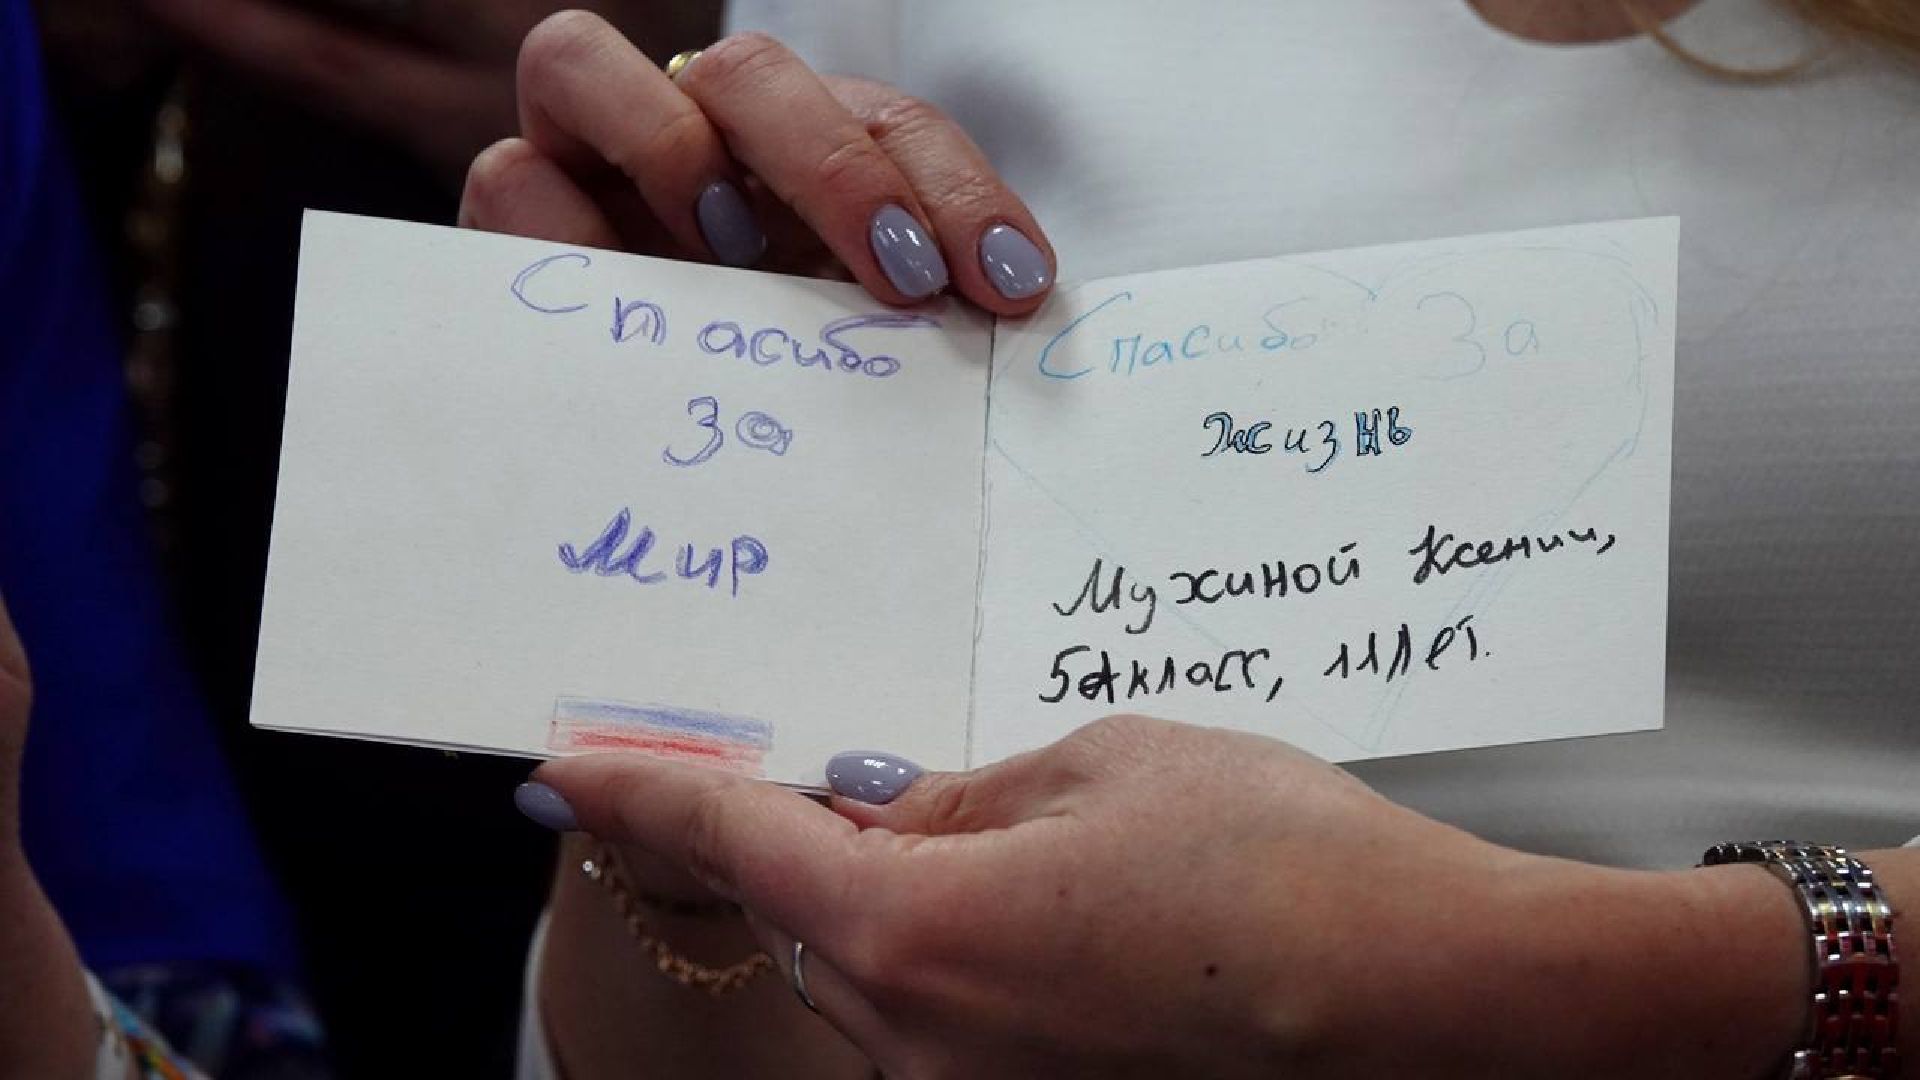 Спасибо
за
Мир
Спасибо за
жизнь
Мужиной Ксении,
5А класс, 11 лет.